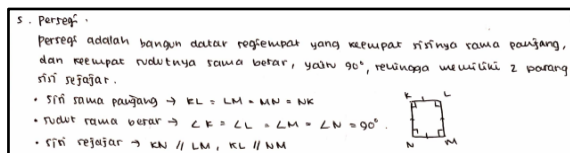 5. Persegi.
Persegi adalah bangun datar segiempat yang keempat sisinya sama panjang,
dan keempat sudutnya sama besar, yaitu 90°, sehingga memiliki 2 pasang
sisi sejajar.
• Sisi sama panjang → KL = LM = MN = NK
• Sudut sama besar → ∠K = ∠L = ∠M = ∠N = 90°.
• Sisi sejajar → KN // LM, KL // NM
K L
N M